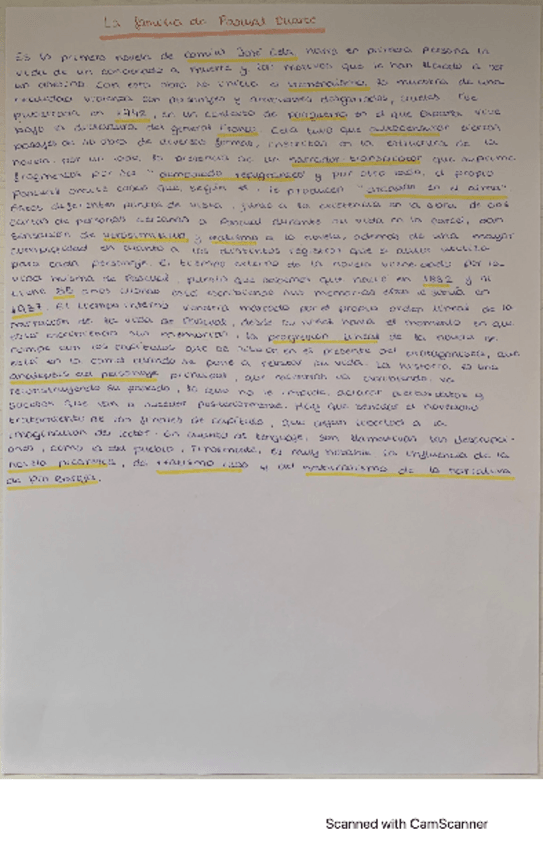 La familia de Pascual Duarte
Es la primera novela de Camilo José Cela. Narra en primera persona la
vida de un condenado a muerte y los motivos que le han llevado a ser
un asesino. Con esta obra se inicia el tremendismo, la muestra de una
realidad violenta con personajes y ambientes desgarrados, crueles. Fue
publicada en 1942, en un contexto de posguerra en el que España vive
bajo la dictadura del general Franco. Cela tuvo que autocensurar ciertos
pasajes de su obra de diversas formas, insertadas en la estructura de la
novela. Por un lado, la presencia de un narrador transcriptor que suprime
fragmentos por ser " repugnantes" y por otro lado, el propio
Pascual omite cosas que, según él, le producen " en el alma"
Estos diferentes puntos de vista, junto a la existencia en la obra de dos
cartas de personas cercanas a Pascual durante su vida en la cárcel, dan
sensación de verosimilitud y realismo a la novela, además de una mayor
complejidad en cuanto a los distintos registros que el autor utiliza
para cada personaje. El tiempo externo de la novela viene dado por la
vida misma de Pascual, puesto que sabemos que nació en 1882 y él
tiene 55 años cuando está escribiendo sus memorias
1937. El tiempo interno vendría marcado por el propio orden lineal de la
narración de la vida de Pascual, desde su niñez hasta el momento en que
está escribiendo sus memorias, la progresión lineal de la novela se
rompe con los capítulos que se sitúan en el presente del protagonista, que
está en la cárcel cuando se pone a relatar su vida. La historia, es una
analepsis del personaje principal, que mientras va escribiendo, va
reconstruyendo su pasado, lo que no le impide, aclarar
sucesos que van a suceder posteriormente. Hay que señalar el novedoso
tratamiento de los finales de capítulo, que dejan libertad a la
imaginación del lector. En cuanto al lenguaje, son llamativas las descripci-
ones, como la del pueblo. Finalmente, es muy notable la influencia de la
novela picaresca, de realismo ruso y del de la narrativa
de Pío Baroja.
Scanned with CamScanner